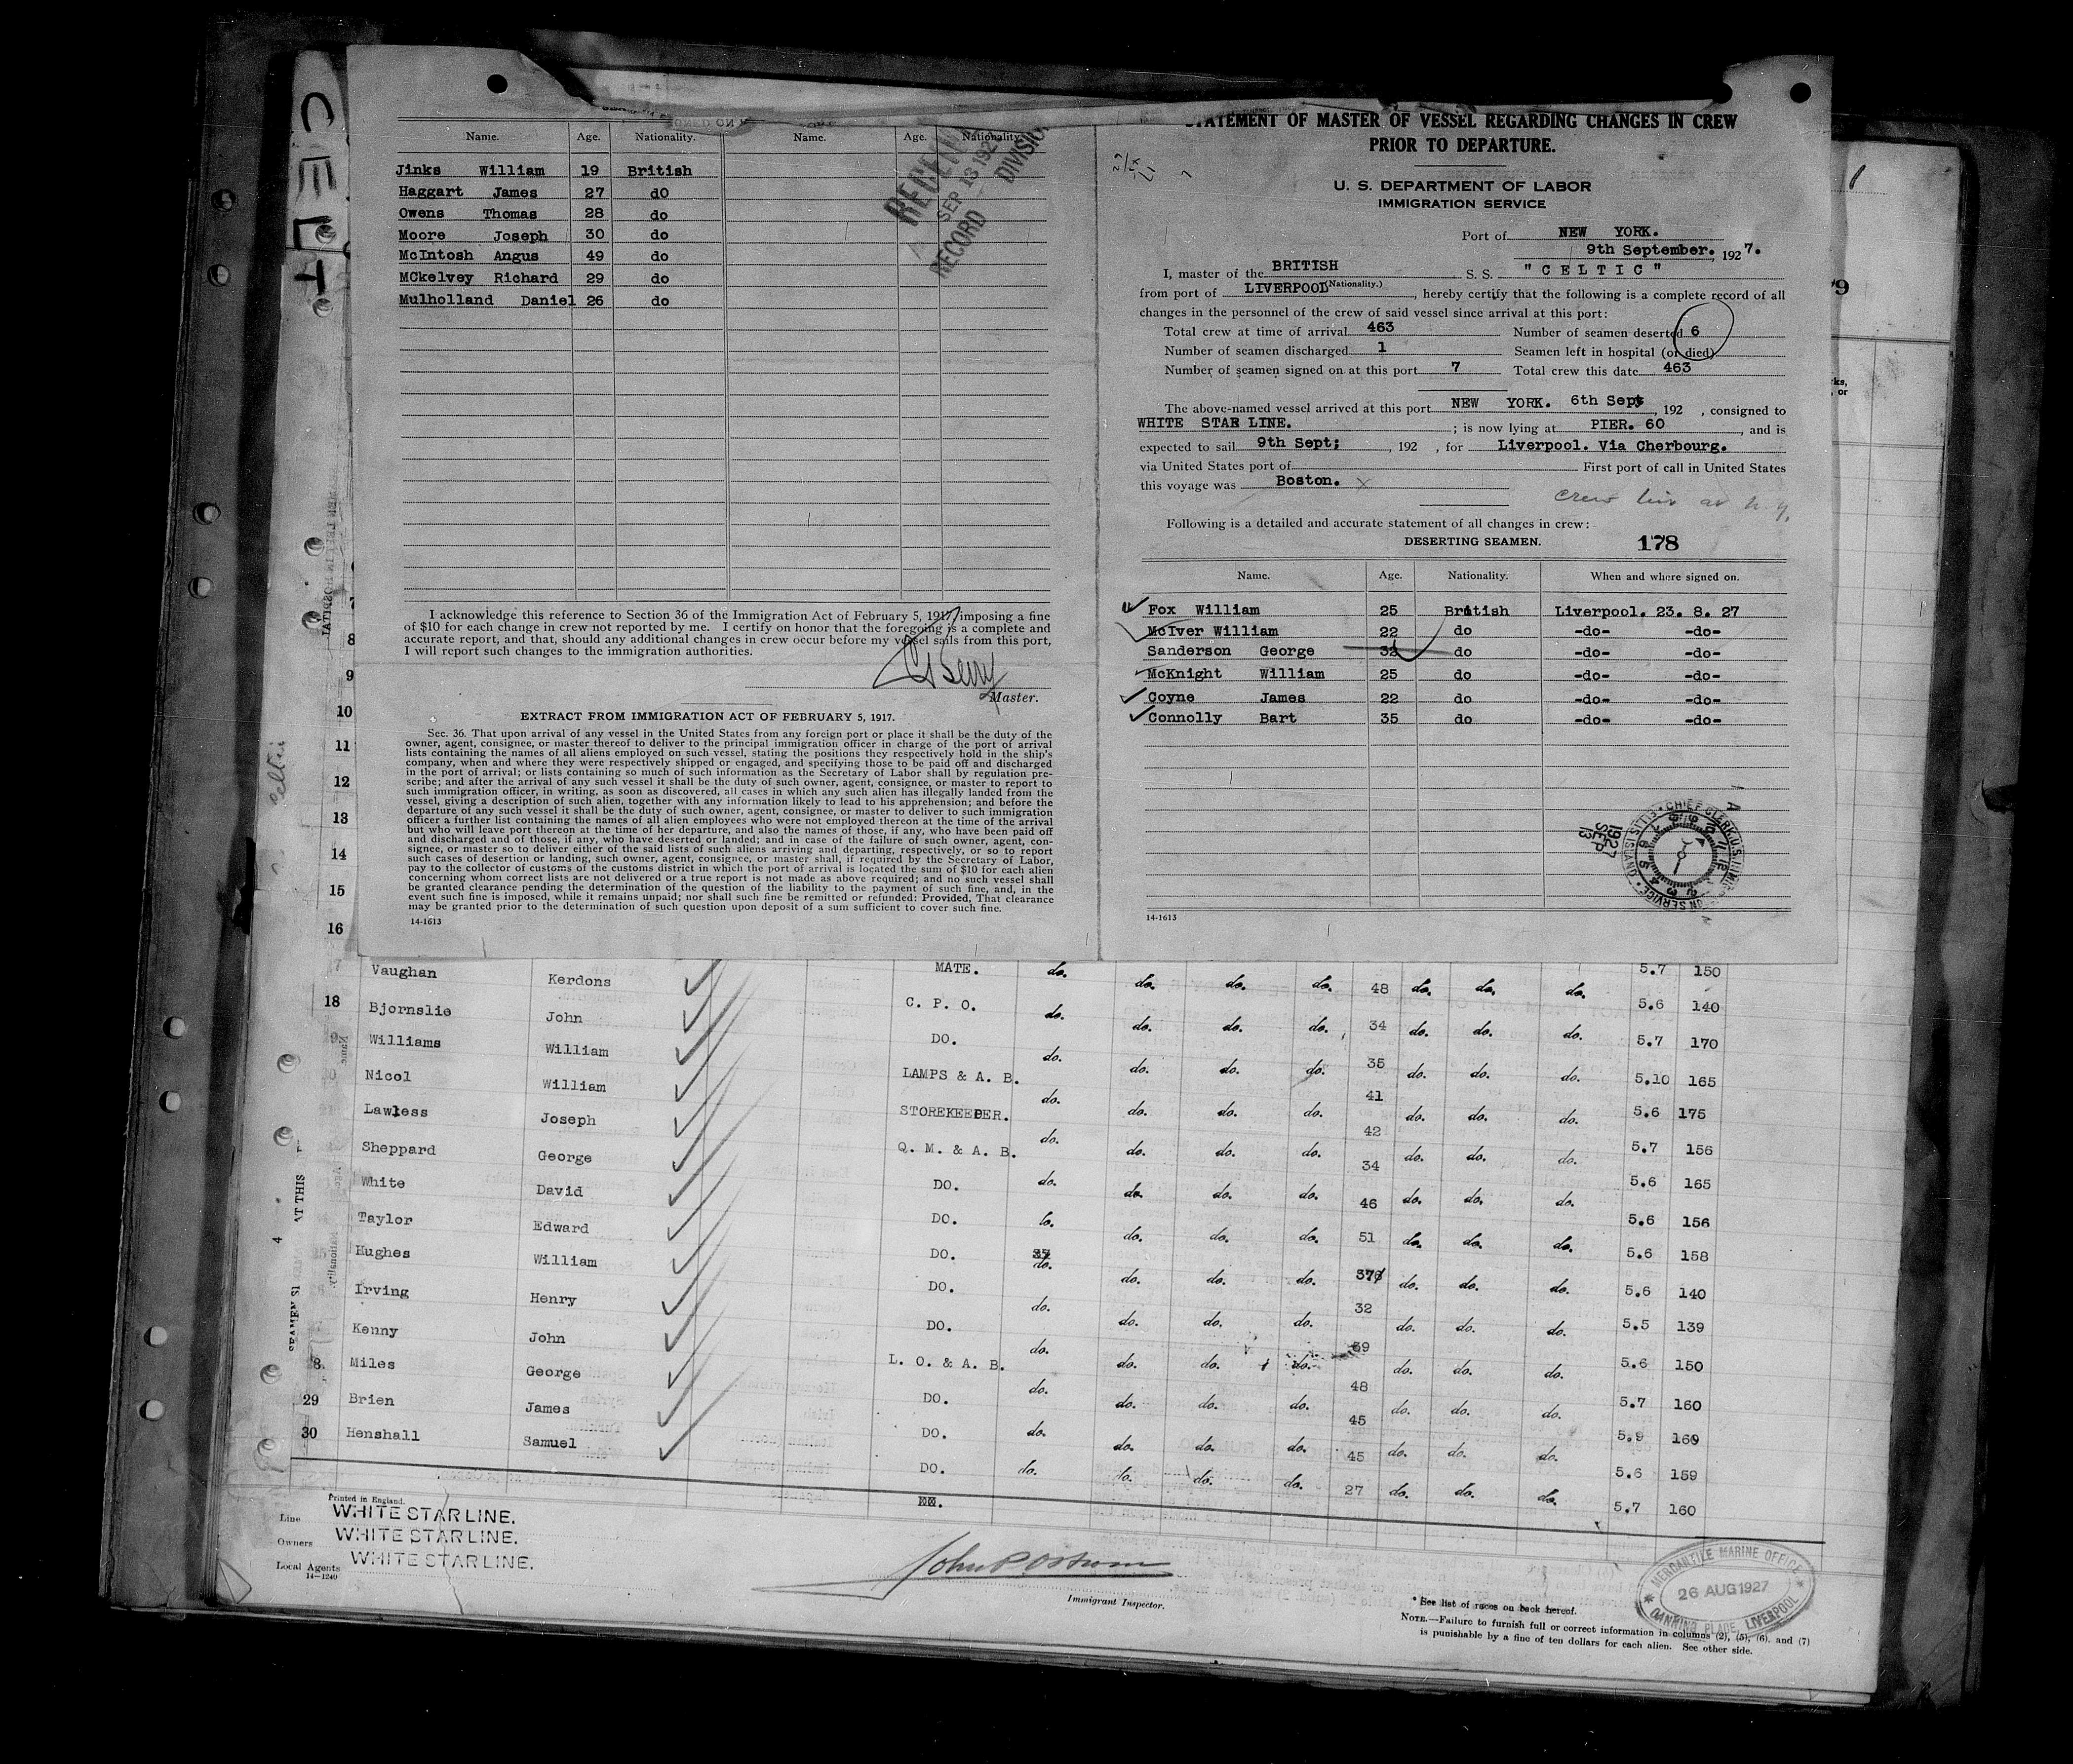 CELT
Name. Age. Nationality. Name. Age. Nationality.
Jinks William 19 British
Haggart James 27 dO
Owens Thomas 28 do
Moore Joseph 30 do
McIntosh Angus 49 do
MCkelvey Richard 29 do
Mulholland Daniel 26 do
RECEIV
SEP 13 192
RECORD DIVISIO
I acknowledge this reference to Section 36 of the Immigration Act of February 5, 1917, imposing a fine
of $10 for each change in crew not reported by me. I certify on honor that the foregoing is a complete and
accurate report, and that, should any additional changes in crew occur before my vessel sails from this port,
I will report such changes to the immigration authorities.
Master.
EXTRACT FROM IMMIGRATION ACT OF FEBRUARY 5, 1917.
Sec. 36. That upon arrival of any vessel in the United States from any foreign port or place it shall be the duty of the
owner, agent, consignee, or master thereof to deliver to the principal immigration officer in charge of the port of arrival
lists containing the names of all aliens employed on such vessel, stating the positions they respectively hold in the ship's
company, when and where they were respectively shipped or engaged, and specifying those to be paid off and discharged
in the port of arrival; or lists containing so much of such information as the Secretary of Labor shall by regulation pre-
scribe; and after the arrival of any such vessel it shall be the duty of such owner, agent, consignee, or master to report to
such immigration officer, in writing, as soon as discovered, all cases in which any such alien has illegally landed from the
vessel, giving a description of such alien, together with any information likely to lead to his apprehension; and before the
departure of any such vessel it shall be the duty of such owner, agent, consignee, or master to deliver to such immigration
officer a further list containing the names of all alien employees who were not employed thereon at the time of the arrival
but who will leave port thereon at the time of her departure, and also the names of those, if any, who have been paid off
and discharged and of those, if any, who have deserted or landed; and in case of the failure of such owner, agent, con-
signee, or master so to deliver either of the said lists of such aliens arriving and departing, respectively, or so to report
such cases of desertion or landing, such owner, agent, consignee, or master shall, if required by the Secretary of Labor,
pay to the collector of customs of the customs district in which the port of arrival is located the sum of $10 for each alien
concerning whom correct lists are not delivered or a true report is not made as above required; and no such vessel shall
be granted clearance pending the determination of the question of the liability to the payment of such fine, and, in the
event such fine is imposed, while it remains unpaid; nor shall such fine be remitted or refunded: Provided, That clearance
may be granted prior to the determination of such question upon deposit of a sum sufficient to cover such fine.
14-1613
STATEMENT OF MASTER OF VESSEL REGARDING CHANGES IN CREW
PRIOR TO DEPARTURE.
U. S. DEPARTMENT OF LABOR
IMMIGRATION SERVICE
Port of NEW YORK.
9th September. 1927.
I, master of the BRITISH S. S. "CELTIC"
(Nationality.)
from port of LIVERPOOL, hereby certify that the following is a complete record of all
changes in the personnel of the crew of said vessel since arrival at this port:
Total crew at time of arrival 463 Number of seamen deserted 6
Number of seamen discharged 1 Seamen left in hospital (or died)
Number of seamen signed on at this port 7 Total crew this date 463
The above-named vessel arrived at this port NEW YORK. 6th Sept, 192 , consigned to
WHITE STAR LINE. ; is now lying at PIER. 60, and is
expected to sail 9th Sept;, 192 , for Liverpool. Via Cherbourg.
via United States port of First port of call in United States
this voyage was Boston. x
Following is a detailed and accurate statement of all changes in crew:
DESERTING SEAMEN. 178
Name. Age. Nationality. When and where signed on.
Fox William 25 British Liverpool. 23. 8. 27
McIver William 22 do -do- -do-
Sanderson George 32 do -do- -do-
McKnight William 25 do -do- -do-
Coyne James 22 do -do- -do-
Connolly Bart 35 do -do- -do-
1927 SEP 13
14-1613
8
9
10
11
12
13
14
15
16
7 Vaughan Kerdons MATE. do. do. do. do. 48 do. do. do. 5.7 150
18 Bjornslie John C. P. O. do. do. do. do. 34 do. do. do. 5.6 140
9 Williams William DO. do. do. do. do. 35 do. do. do. 5.7 170
Nicol William LAMPS & A. B. do. do. do. do. 41 do. do. do. 5.10 165
Lawless Joseph STOREKEEPER. do. do. do. do. 42 do. do. do. 5.6 175
Sheppard George Q. M. & A. B. do. do. do. do. 34 do. do. do. 5.7 156
White David DO. do. do. do. do. 46 do. do. do. 5.6 165
Taylor Edward DO. do. do. do. do. 51 do. do. do. 5.6 156
Hughes William DO. do. do. do. do. 37 do. do. do. 5.6 158
Irving Henry DO. do. do. do. do. 32 do. do. do. 5.6 140
Kenny John DO. do. do. do. do. 39 do. do. do. 5.5 139
8. Miles George L. O. & A. B. do. do. do. do. 48 do. do. do. 5.6 150
29 Brien James DO. do. do. do. do. 45 do. do. do. 5.7 160
30 Henshall Samuel DO. do. do. do. do. 45 do. do. do. 5.9 160
DO. 27 5.6 159
5.7 160
Printed in England.
Line WHITE STAR LINE.
Owners WHITE STAR LINE.
Local Agents WHITE STAR LINE.
14-1240
Immigrant Inspector.
* See list of races on back hereof.
NOTE.—Failure to furnish full or correct information in columns (2), (5), (6), and (7)
is punishable by a fine of ten dollars for each alien. See other side.
MERCANTILE MARINE OFFICE
26 AUG 1927
CANNING PLACE, LIVERPOOL